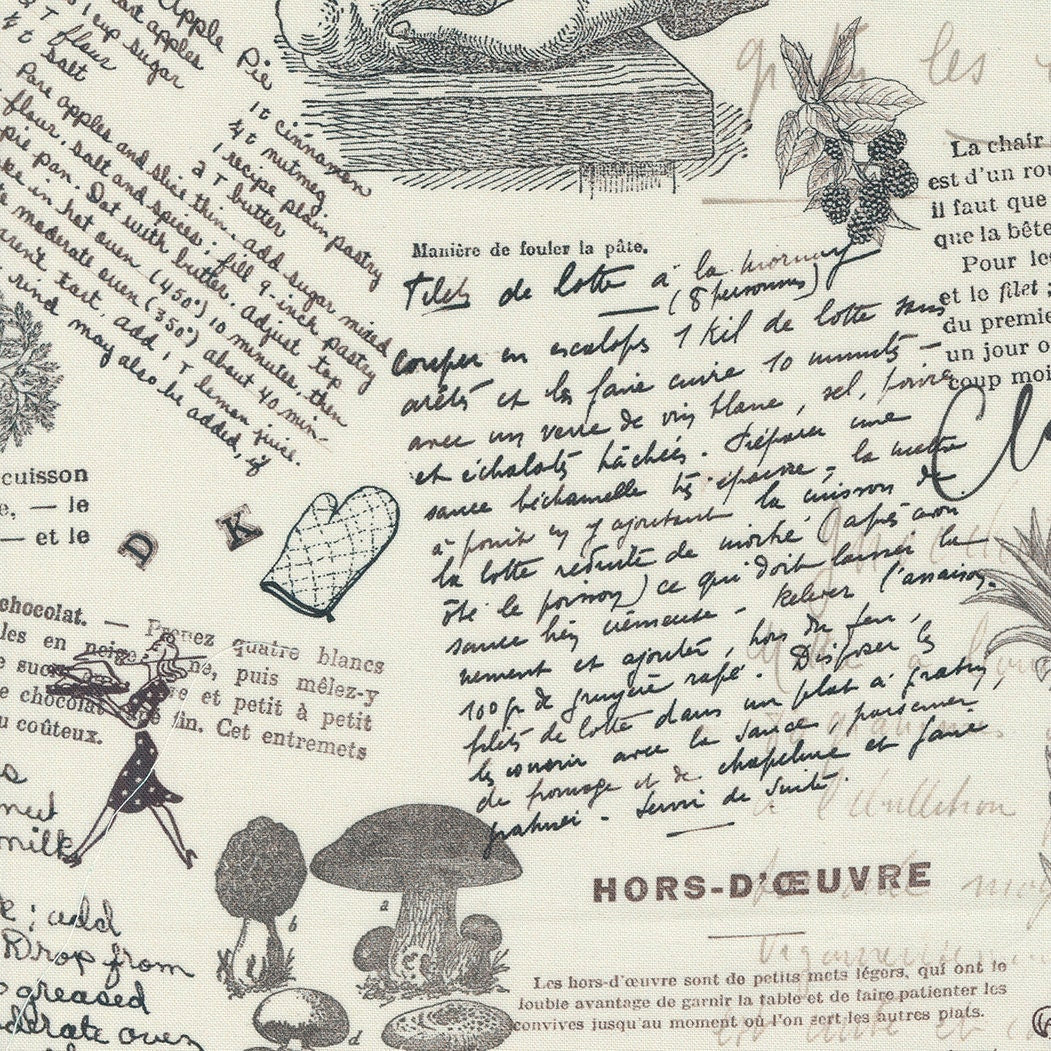 Apple Pie
tart apples
1 cup sugar
T flour
t salt
1 t cinnamon
¼ t nutmeg
1 recipe plain pastry
2 T butter
Pare apples and slice thin. add sugar mixed
flour, salt and spices; fill 9-inch pastry
pie pan. Dot with butter. Adjust top
in hot oven (450°) 10 minutes, then
moderate oven (350°) about 40 min-
tart, add 1 T lemon juice.
rind may also be added, if
Manière de fouler la pâte.
filets de lotte à la mornay
(8 personnes)
Couper en escalops 1 Kil de lotte sans
arêtes et les faire cuire 10 minutes -
avec un verre de vin blanc, sel, poivre
et échalots hâchées. Préparer une
sauce béchamelle très épaisse, la mettre
à point en y ajoutant la cuisson de
la lotte réduite de moitié (après avoir
ôté le poisson) ce qui doit laisser la
sauce très crémeuse - Relever l'assaison-
nement et ajouter, hors du feu,
100 gr de gruyère rapé. Disposer les
filets de lotte dans un plat à gratin,
les couvrir avec la sauce, parsemer
de fromage et de chapelure et faire
gratiner - Servir de suite.
La chair
est d'un rou
il faut que
que la bête
Pour les
et le filet ;
du premie
un jour o
coup moi
les
cuisson
e, — le
— et le
D K
chocolat. — Prenez quatre blancs
les en neige, puis mêlez-y
e sucre et petit à petit
e chocolat fin. Cet entremets
u coûteux.
milk
; add
Drop from
greased
oven
a
b
d
l'ébullition
HORS-D'ŒUVRE
Les hors-d'œuvre sont de petits mets légers, qui ont le
double avantage de garnir la table et de faire patienter les
convives jusqu'au moment où l'on sert les autres plats.